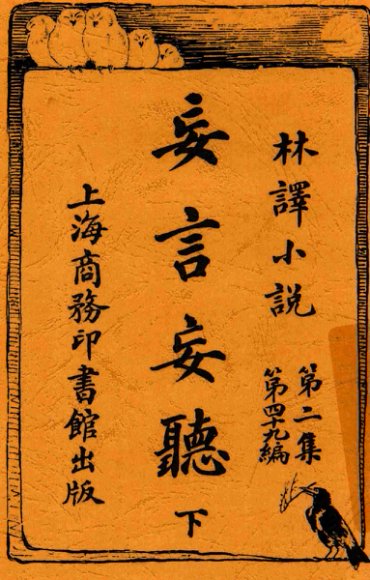 林譯小説
第二集
第四十九編
妄言妄聽
下
上海商務印書館出版